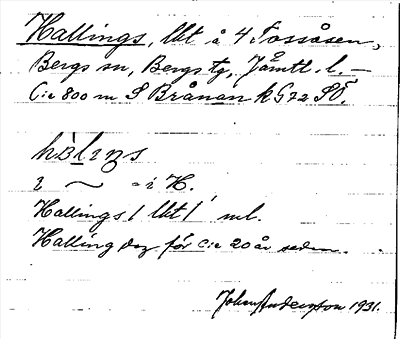 Hallings, lkt å 4 Tossåsen,
Bergs sn, Bergs tg, Jämtl. l. —
C:a 800 m S Brånan k G 72 SÖ.
i ~ = i H.
Hallings / lkt / ml.
Halling dog för c:a 20 år sedan.
John Andersson 1931.